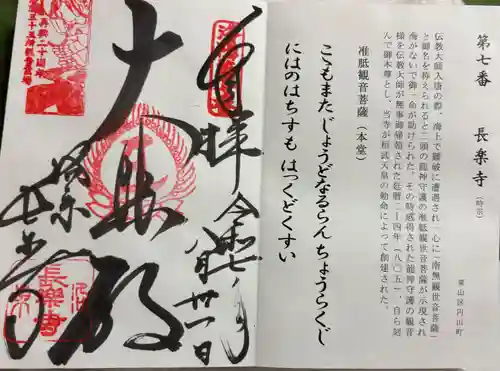 第七番 長楽寺（時宗）
東山区円山町
伝教大師入唐の際、海上で難破に遭遇され一心に「南無観世音菩薩」
と御名を称えられると二頭の龍神守護の准胝観世音菩薩が示現され
海がないで御一命が助けられた。その時感得された龍神守護の観音
様を伝教大師が無事御帰朝された延暦二十四年（八〇五）、自ら刻
んで御本尊とし、当寺が桓武天皇の勅命によって創建された。
准胝観音菩薩（本堂）
こもまた じょうどなるらん ちょうらくじ
にはのはちすも はっくどくすい
奉拝 令和七年
八月廿一日
大悲殿
京
長楽寺
再興二十周年